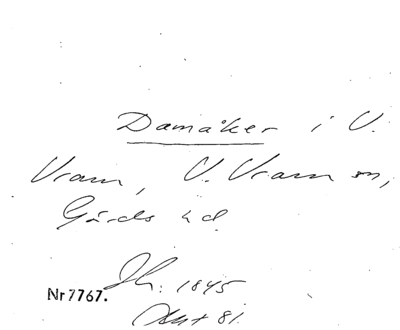 Damåker i V.
Vram, V. Vram sn,
Gärds hd
Jh: 1845
Akt 81.
Nr 7767.